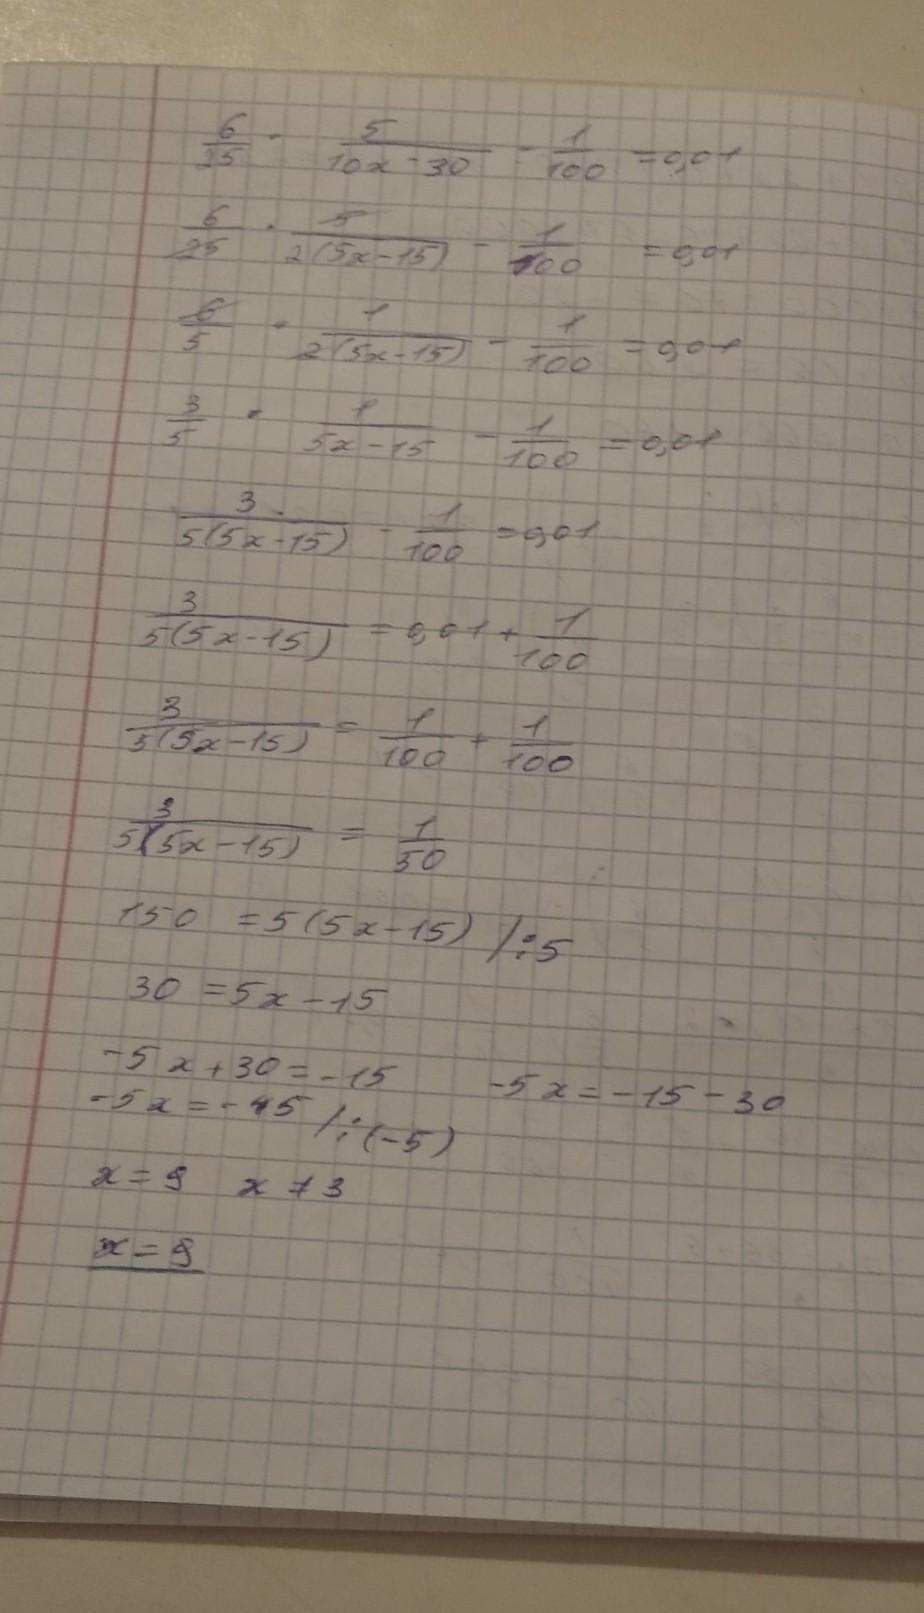 6/25 · 5/(10x-30) - 1/100 = 0,01
6/25 · 5/(2(5x-15)) - 1/100 = 0,01
6/5 · 1/(2(5x-15)) - 1/100 = 0,01
3/5 · 1/(5x-15) - 1/100 = 0,01
3/(5(5x-15)) - 1/100 = 0,01
3/(5(5x-15)) = 0,01 + 1/100
3/(5(5x-15)) = 1/100 + 1/100
3/(5(5x-15)) = 1/50
150 = 5(5x-15) /:5
30 = 5x-15
-5x+30=-15 -5x=-15-30
-5x=-45 /:(-5)
x=9 x≠3
x=9